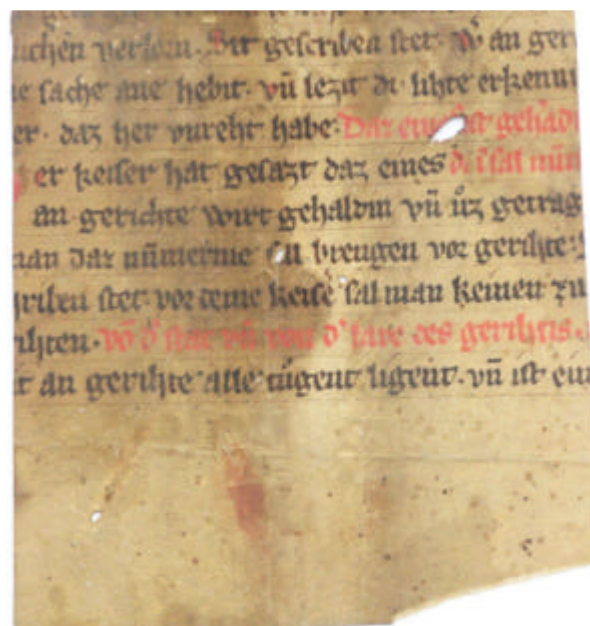 lichen verlorn. Dit gescriben stet. Vō an geri
ne sache ane hebit. vn̄ lezit di lihte erkennu
er. daz her vnreht habe. Daz eines ist gehādi
er keiser hat gesazt daz eines sal nūm
an gerichte wirt gehaldin vn̄ vz getrag
man daz nūmerme sul brengen vor gerihte.
hriben stet. vor deme keisē sal man keinen zu
rihten. Vō d' stat vn̄ von d' fare des gerihtis.
it an gerihte alle tugent ligent. vn̄ ist ein